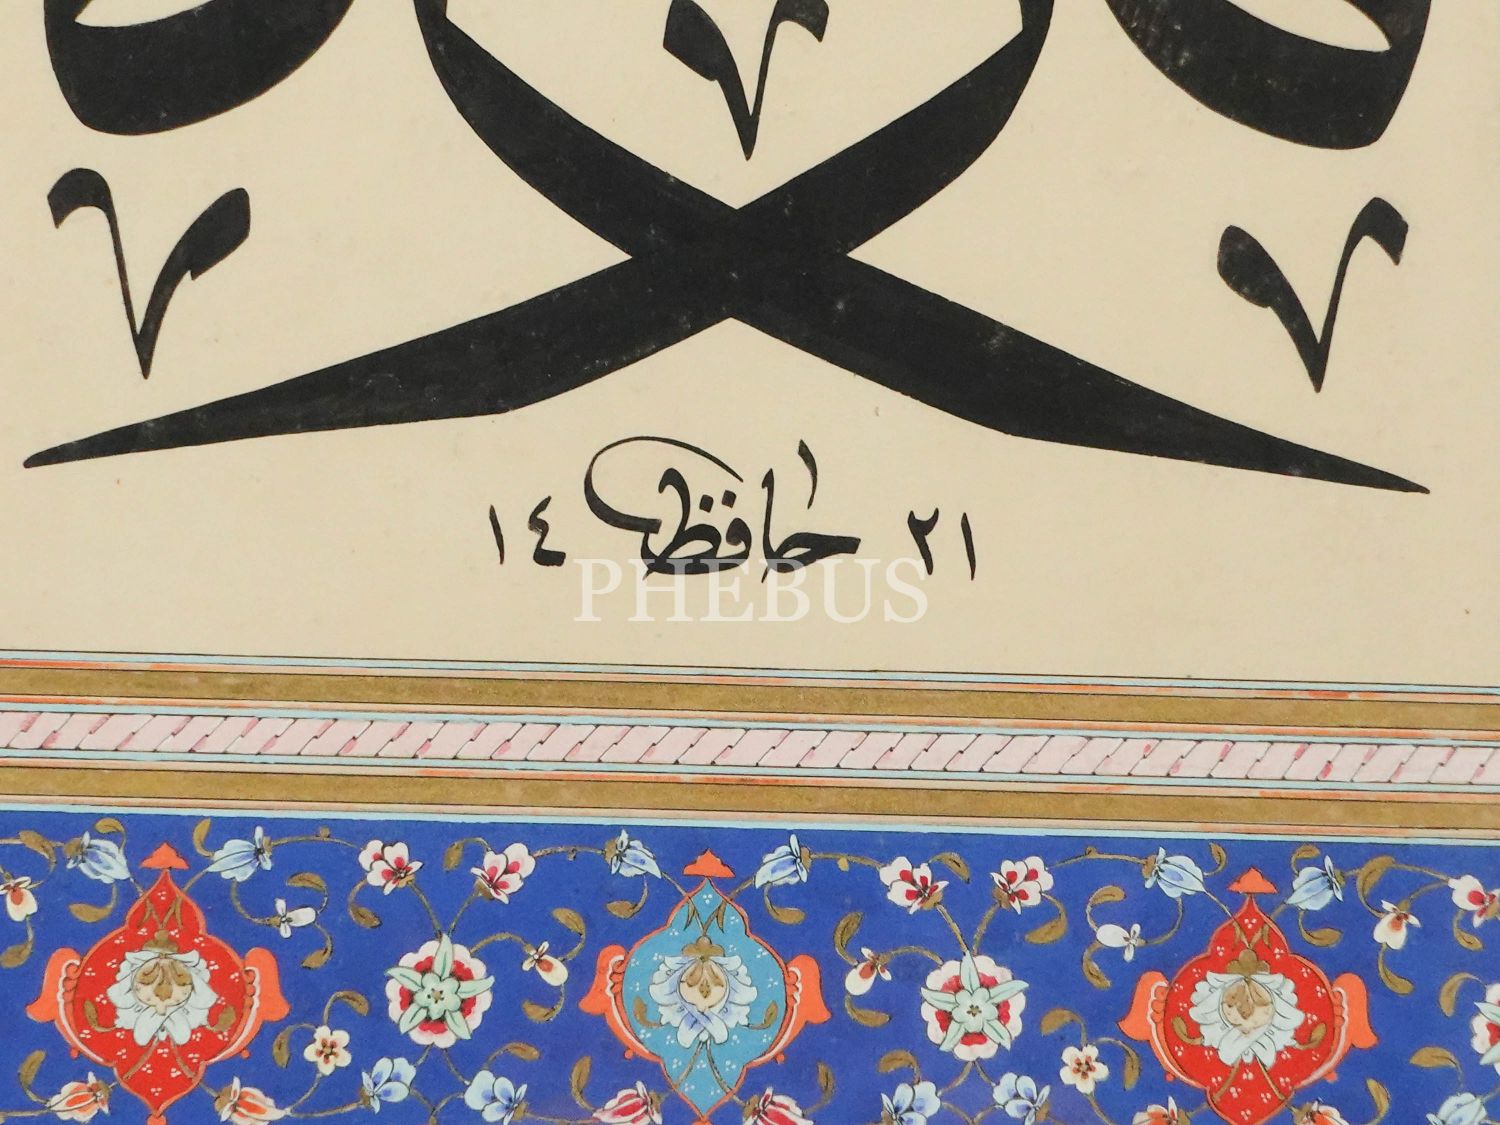 ١٤ حافظ ٢١
PHEBUS